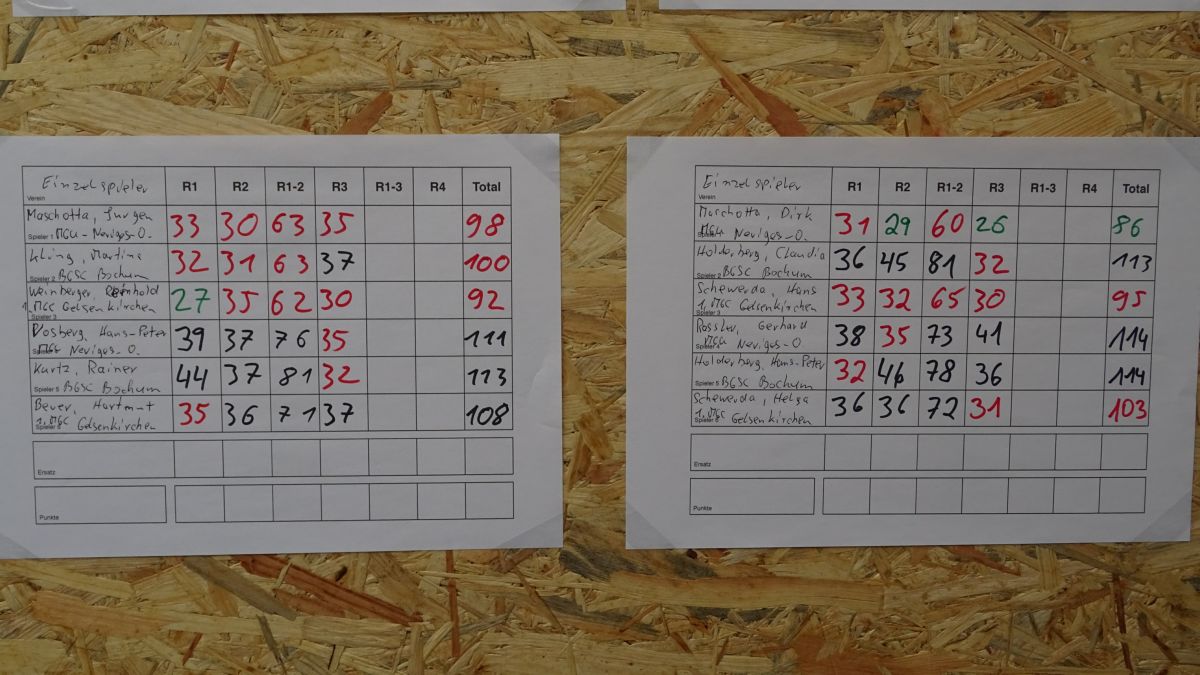 Einzelspieler R1 R2 R1-2 R3 R1-3 R4 Total
Verein
Maschotta, Jurgen 33 30 63 35 98
Spieler 1 MGC - Neviges-O.
Kling, Martina 32 31 63 37 100
Spieler 2 BGSC Bochum
Weinberger, Reinhold 27 35 62 30 92
1. MGC Gelsenkirchen
Spieler 3
Vosberg, Hans-Peter 39 37 76 35 111
MGC Neviges-O.
Kurtz, Rainer 44 37 81 32 113
Spieler 5 BGSC Bochum
Beuer, Hartmut 35 36 71 37 108
1. MGC Gelsenkirchen
Spieler 6
Ersatz
Punkte
Einzelspieler R1 R2 R1-2 R3 R1-3 R4 Total
Verein
Maschotta, Dirk 31 29 60 26 86
MGC Neviges-O.
Holderberg, Claudia 36 45 81 32 113
Spieler 2 BGSC Bochum
Schewerda, Hans 33 32 65 30 95
1. MGC Gelsenkirchen
Spieler 3
Rossler, Gerhard 38 35 73 41 114
MGC Neviges-O.
Holderberg, Hans-Peter 32 46 78 36 114
Spieler 5 BGSC Bochum
Schewerda, Helga 36 36 72 31 103
1. MGC Gelsenkirchen
Spieler 6
Ersatz
Punkte